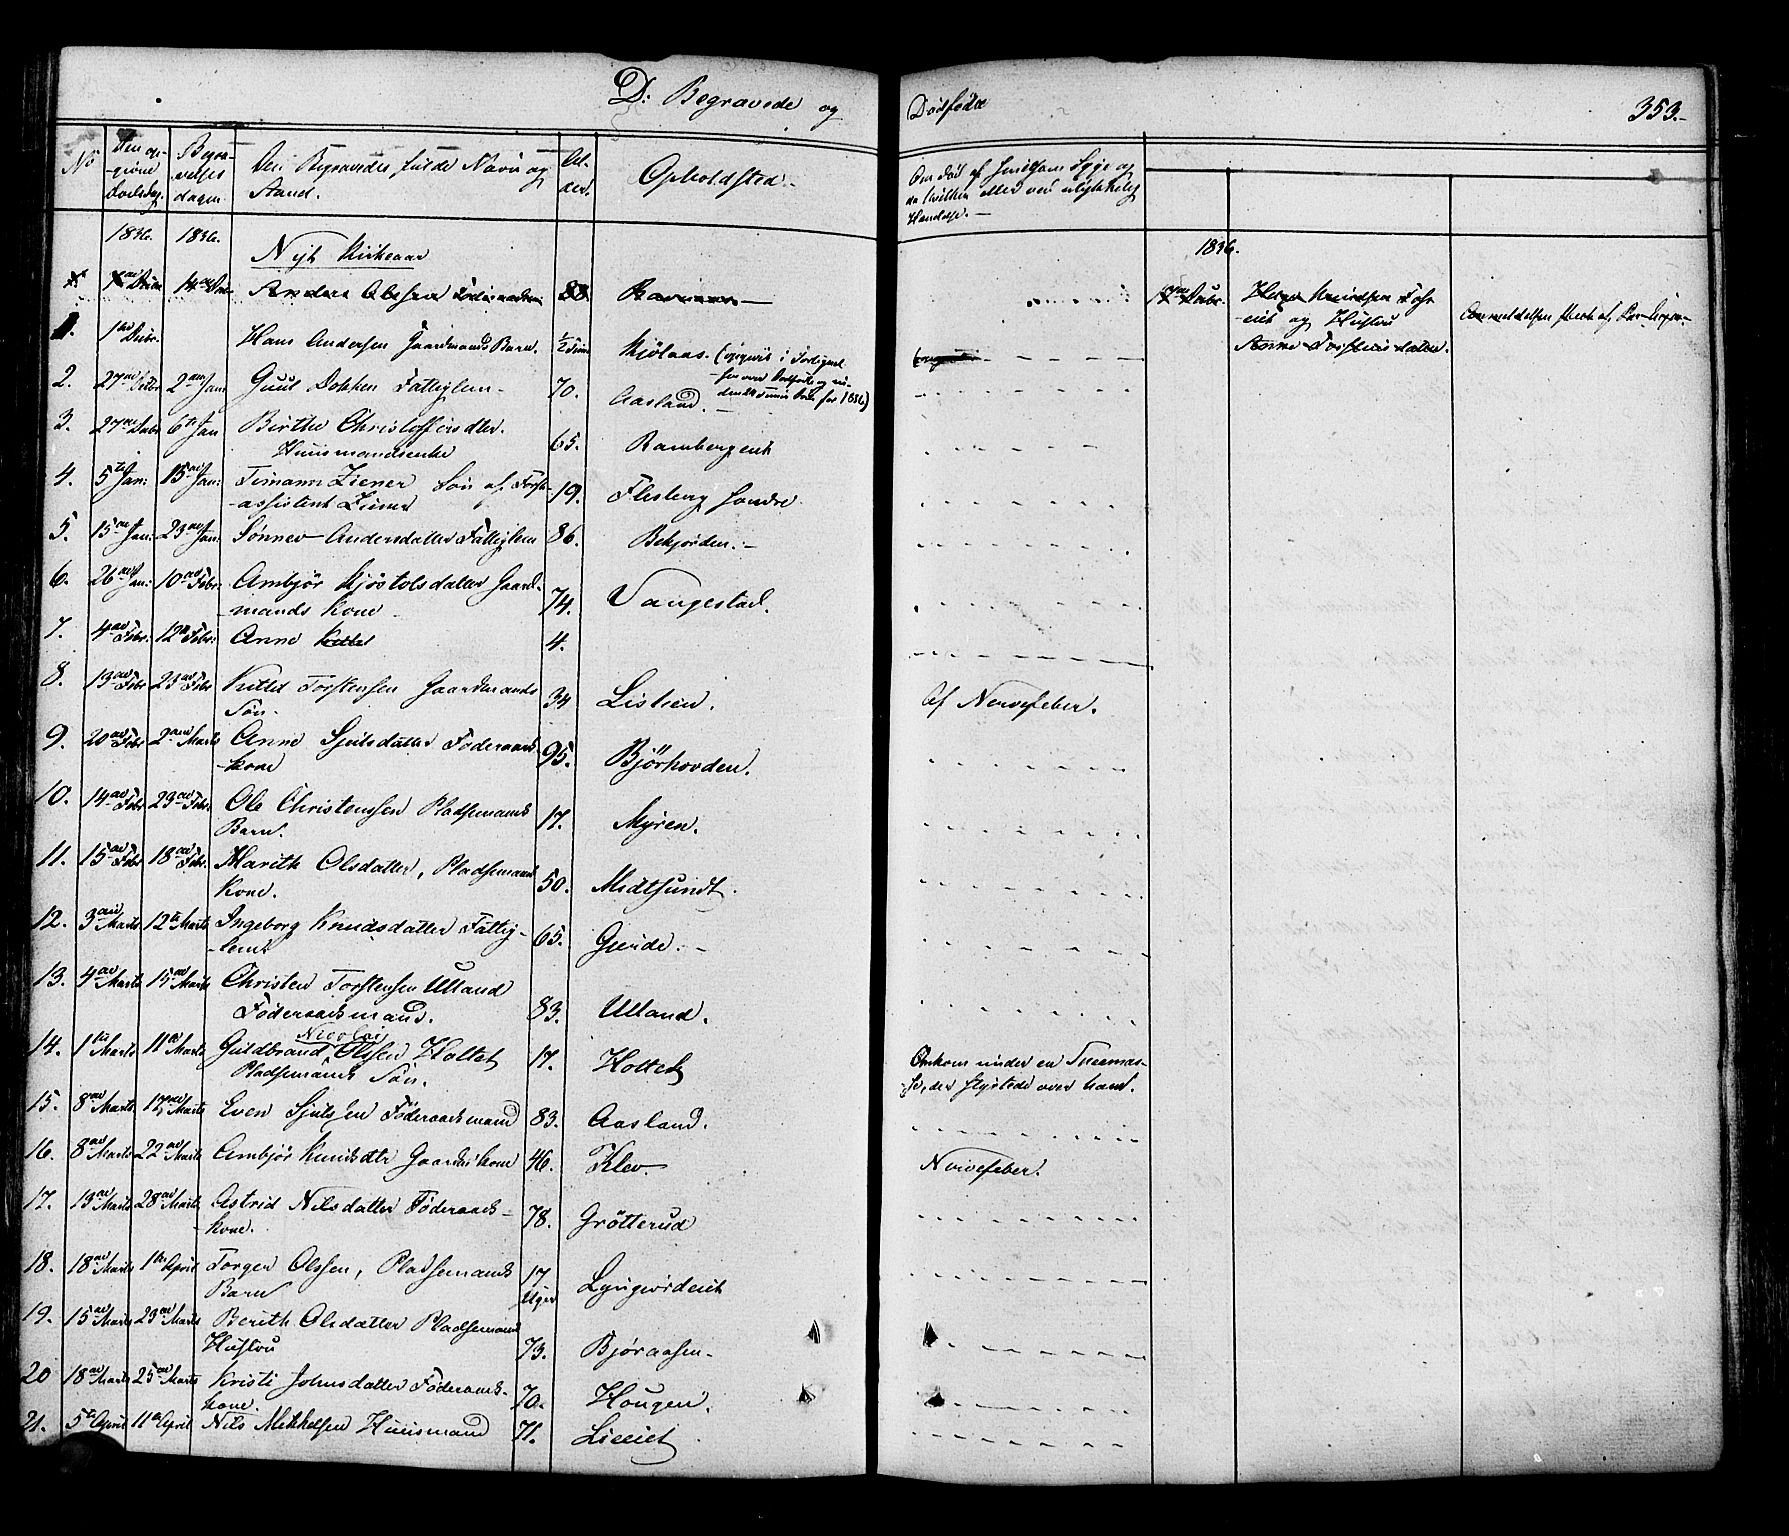 D: Begravede og
Dødfødte
353.-
No
Den opgivne Dødsdag.
Begravelses dagen
Den Begravedes fulde Navn og Stand.
Alder.
Opholdsted.
Om død af smitsom Syge og da hvilken eller ved ulykkelig Hændelse.-
1836. 1836. Nyt Kirkeaar
1836.
Anders Olssen 88.
Helge Knudsen
og Hustru
Anne Torstensdatter.
1. 1ste Decbr. Hans Andersen Gaardmands Barn. ½ Time Kjølaas.
2. 27de 2den Jan Guul Dokken Fattiglem - 70. Aasland. -
3. 27de Decbr 6te Jan Birthe Christoffersdtr.
Huusmandsenke 65. Rambergeie
4. 5te Jan: 15de Jan: Timann Ziener Søn af Forst-
-assistent Ziener 19. Flesberg Søndre
5. 15de Jan: 23de Jan: Sønnev Andersdatter Fattiglem 86. Bekjorden. -
6. 26de Jan: 10de Febr. Ambjør Kjøstolsdatter Gaard-
-mands Kone 74. Vangestad.
7. 4de Febr: 12te Febr: Anne 4.
8. 13de Febr 23de Febr Kittel Torstensen Gaardmands
Søn. 34 Lislien. Af Nervefeber.
9. 20de Febr 2den Marts Anne Sjulsdatter Føderaads-
-kone 95. Bjørhovden.
10. 14de Febr 23de Febr. Ole Christenssen Pladsemands
Barn. 17. Myren.
11. 15de Febr 18de Febr. Marith Olsdatter, Pladsemands
Kone. 50. Midtsundt.
12. 3die Marts 12te Marts Ingeborg Knudsdatter Fattig-
-lem 65. Gunde. -
13. 4de Marts 15de Marts Christen Torstensen Ulland
Føderaadsmand. 83. Ulland.
Nicolai
14. 1ste Marts 11te Marts Guldbrand Olssen Holtet
Pladsemands Søn. 17. Holtet Omkom under en Sneemas-
-se, der styrtede over ham.
15. 8de Marts 17de Marts Even Sjulsen Føderaadsmand 83. Aasland.
16. 8de Marts 22de Marts Ambjør Knudsdtr Gaardms kone 46. Klev. Nervefeber.
17. 13de Marts 28de Marts Astrid Nilsdatter Føderaads-
kone. 78. Grøtterud
18. 18de Marts 1ste April Torgen Olssen, Pladsemands
Barn 17 Uger Lyngjordeiet
19. 15de Marts 23de Marts Berith Olsdatter Pladsemands
Hustru 73. Bjøraasen-
20 18de Marts 25de Marts Kristi Johnsdatter Føderaads-
kone. 70. Hougen.
21. 5te April 11te April Nils Mikkelsen Huusmand 71. Lieeiet